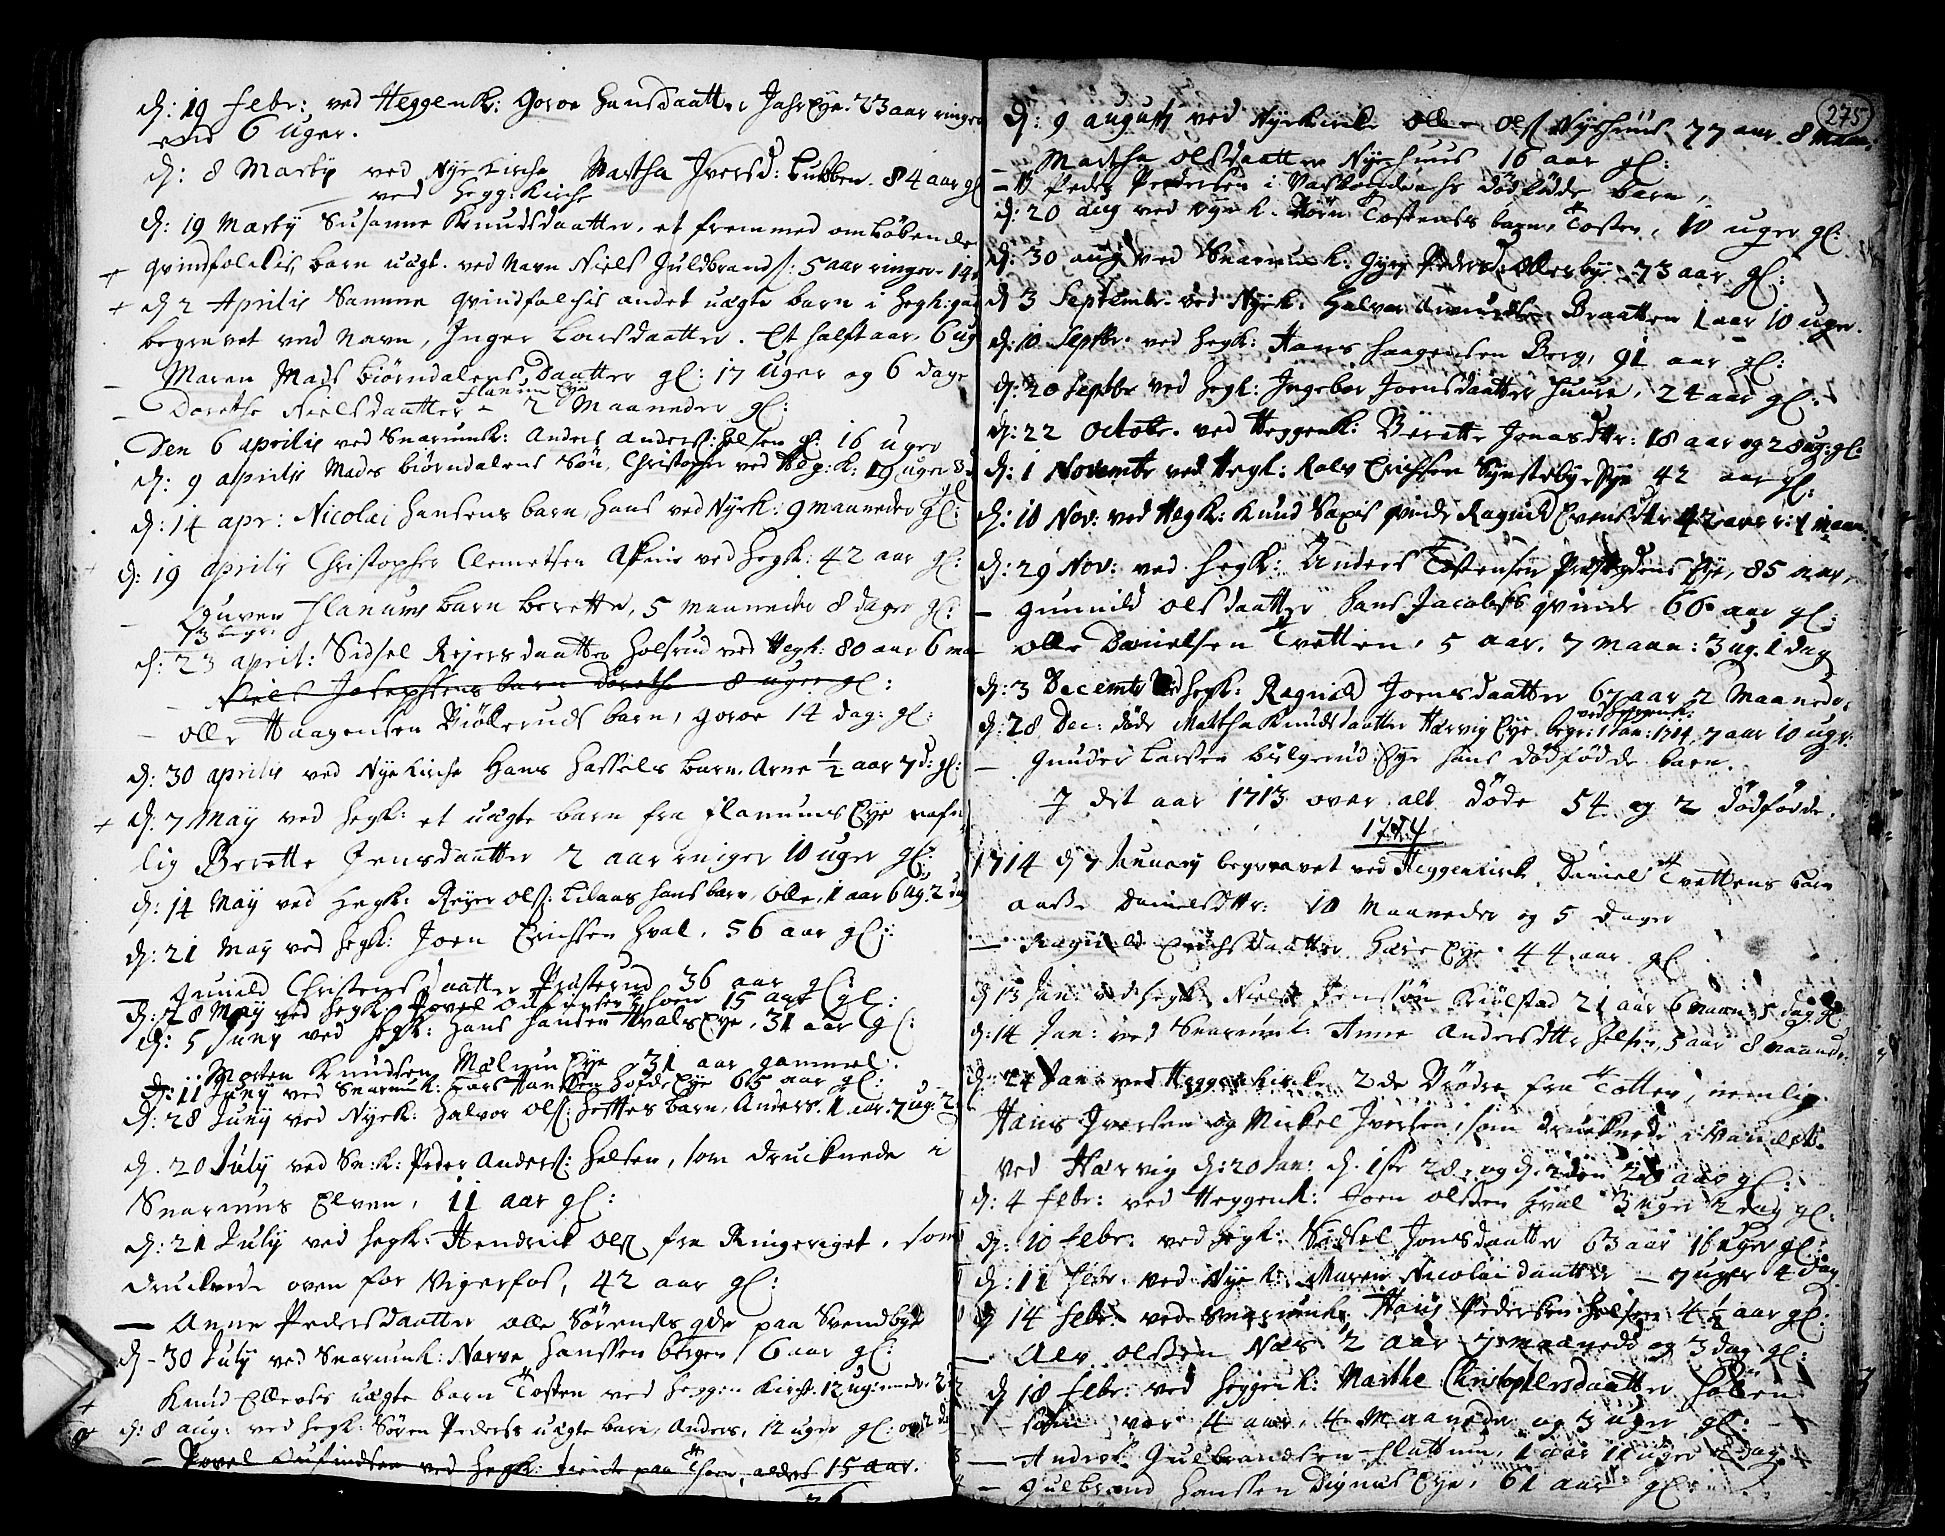 d: 19 febr: ved Heggenk: Goroe Hansdaatter JahrEye. 23 aar ringer
end 6 uger.
d: 8 Marty ved Nyekirche Martha Iversd: Lubben. 84 aar gl
ved Hegg: Kirche
d: 19 Marty Susanne Knudsdaatter, et fremmed omløbende
qvindfolckis barn uægt. ved Navn Niels Guldbrands: 5 aar ringer 14
d 2 Aprilis Samme qvindfolchis andet uægte barn i Hegk:
begravet ved Navn, Inger Larsdaatter. Et halft aar, 6 ug
Maren Mads Biørndalens Daatter gl: 17 Uger og 6 dage
Flanum Eye
Dorethe Nielsdaatter - 2 Maaneder gl:
Den 6 aprilis ved Snarumk: Anders Anderss: Helsen gl: 16 uger
d: 9 aprilis Mads Biørndalens Søn, Christopher ved Heg:k: 19 uger 3
d: 14 apr: Nicolai Hansens barn, Hans ved Nyek: 9 maaneder gl:
d: 19 aprilis Christopher Clemetsen ved Hegk: 42 aar gl:
Guren Flanums barn Berette, 5 maaneder 8 dager gl:
d: 23 april: Sidsel Reiersdaatter Holsrud ved Hegk: 80 aar 6 ma
Niels Josephsens barn Dorethe 8 uger gl:
Olle Haagensen Biølleruds barn, Goroe 14 dag: gl:
d: 30 aprilis ved Nyekirche Hans Hassels barn. Arne ½ aar 7 d: gl:
d: 7 May ved Hegk: et uægte barn fra Flanums Eye nafn
lig Berette Jensdaatter 2 aar ringer 10 uger gl:
d: 14 May ved Hegk: Reyer Ols: Lilaas hans barn, Olle, 1 aar 6 ug. 2 dag
d: 21 May ved Hegk: Joen Erichsen Hval, 56 aar gl:
Gunild Christensdaatter Præsterud 36 aar gl:
d: 28 May ved Hegk: Povel 15 aar gl:
d: 5 Juny ved Hegk: Hans Hansen Hvals Eye, 31 aar gl:
Morten Knudsen Mælum Eye 31 aar gammel.
d: 11 Juny ved Snarumk: Lars Hanssen Hofde Eye 65 aar gl:
d: 28 Juny ved Nyek: Halvor Ols: barn, Anders. 1 aar. 7 ug. 2
d. 20 July ved Sn:k: Peder Anders: Helsen, som drucknede i
Snarums Elven, 11 aar gl:
d: 21 July ved Hegk: Hendrick Ols fra Ringeriget, som
drucknede oven for Vigerfos, 42 aar gl:
Anne Pedersdaatter Olle Sørens qde paa Svendbye
d - 30 July ved Snarumk: Narve Hanssen Bergen 6 aar gl:
Knud uægte barn Tosten ved Heggen Kirk. 12 ug:
d: 8 aug: ved Hegk: Søren Peders uægte barn, Anders, 12 uger gl:
Povel ved Hegk: paa Thoen, alder 15 aar.
36
275
d: 9 augusti ved Nyekirke Olle Ols Nyehuus 77 aar. 8 maan.
Martha Olsdaatter Nyehuus 16 aar gl:
Peder Pedersen i dødføde barn,
d: 20 aug ved Nyek. Biørn Tostens barn, Tosten, 10 uger gl:
d: 30 aug ved Snarumk: Gye Pedersd Ollersbye 73 aar gl:
d 3 Septembr. ved Nyek: Halvor Braatten 1 aar 10 uger.
d: 10 Septbr: ved Hegk: Hans Haagensen Berg, 91 aar gl:
d: 20 Septbr ved Hegk: Ingebor Joensdaatter Huure, 24 aar gl:
d: 22 Octobr. ved Heggenk: Berette Jonasdtr: 18 aar og 28 ug: gl:
d: 1 Novembr ved Hegk: Rolv Erichsen Synsteby Eye 42 aar gl:
d: 10 Nov: ved Hegk: Knud Saxis qvinde Ragnild Evensdtr 42 aar r: 1 maan.
d: 29 Nov: ved Hegk: Anders Tostensen Eye, 85 aar,
Gunnild Olsdaatter Hans Jacobs qvinde 66 aar gl:
Olle Danielsen Tvetten, 5 aar. 7 maan: 3 ug. 1 dag
d: 3 Decembr ved Hegk: Ragnild Joensdaatter 67 aar 2 Maaneder
ved Heggenk:
d: 28 Dec: døde Martha Knudsdaatter Hærvig Eye, begr: 1 Jan: 1714, 7 aar 10 ugr.
Gunder Larsen Bulgerud Eye hans dødfødde barn.
I det aar 1713 over alt døde 54 og 2 dødfødde.
1714
1714 d 7 January begravet ved Heggenkirk. Daniel Tvettens barn
Aasse Danielsdtr: 10 Maaneder og 5 dager
Ragnild Erichsdaatter Hære Eye. 44 aar gl
d 13 Jan: ved Hegk: Niels Jenssøn Kiølstad 21 aar 6 maan: 5 dag gl:
d: 14 Jan: ved Snarumk: Anne Andersdtr Helsen, 5 aar 8 maander
d: 24 Jan: ved Heggenkircke 2de Brødre fra Totten, nemlig.
Hans Iversen og Mickel Iversen, som drucknede i Vandet
ved Hærvig d: 20 Jan: d. 1ste 28. og d. 2den 20 aar gl:
d: 4 Febr: ved Heggenk: Joen Olssen Hval 3 uger 2 dag gl:
d: 10 Febr: ved Hegk: Sidsel Jonsdaatter 63 aar 16 uger gl:
d: 11 Febr. ved Nyek: Maren Nicolaidaatter - 7 uger 4 dag
d 14 Febr: ved Snarumk: Hans Pedersen Helsen 4 ½ aar gl:
Alv Olssen Næs 2 aar 7 maaneder og 3 dag gl:
d 18 Febr: ved Heggenk: Marthe Christophersdaatter Høllen
som var 4 aar, 4 Maaneder og 3 uger gl:
Anders Gulbrandsen Flattum, 1 aar 11 uger 4 dag
Gulbrand Hanssen Dignus Eye, 61 aar gl: